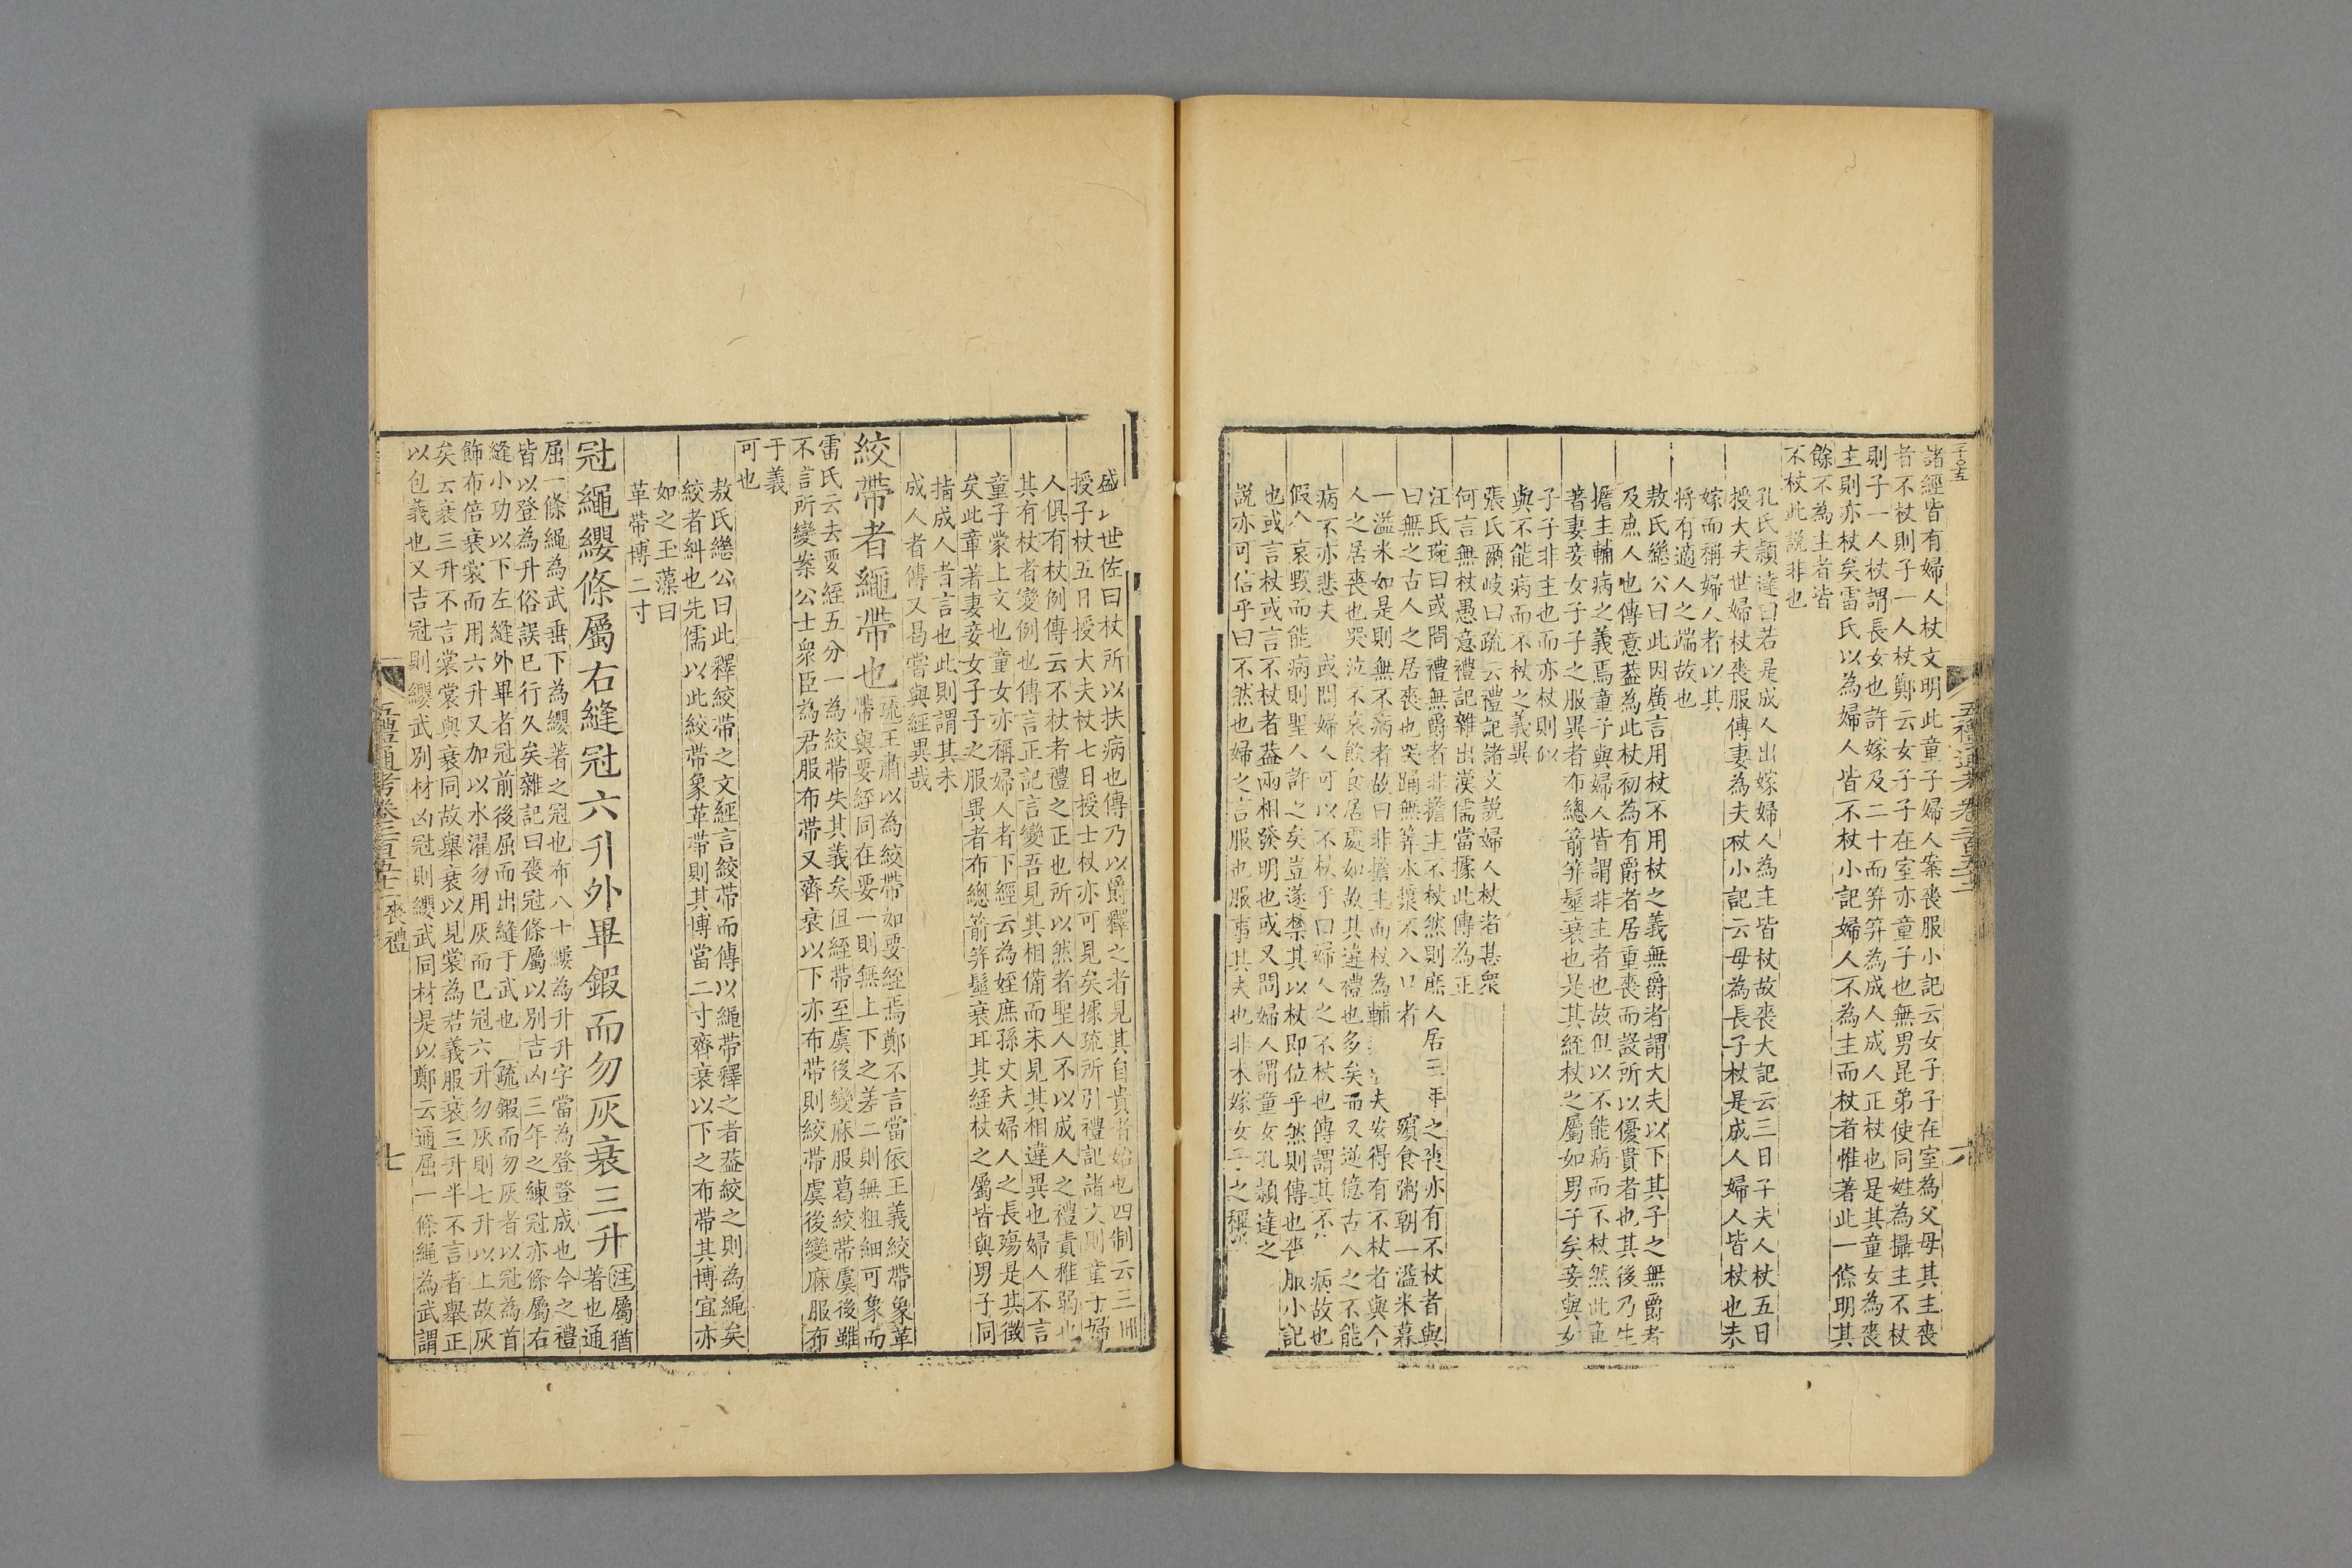 諸經皆有婦人杖文明此童子婦人案喪服小記云女子子在室為父母其主喪
者不杖則子一人杖鄭云女子子在室亦童子也無男昆弟使同姓為攝主不杖
則子一人杖謂長女也許嫁及二十而筓筓為成人成人正杖也是其童女為喪
主則亦杖矣雷氏以為婦人皆不杖小記婦人不為主而杖者惟著此一條明其
餘不為主者皆
不杖此説非也
孔氏頴達曰若是成人出嫁婦人為主皆杖故喪大記云三日子夫人杖五日
授大夫世婦杖喪服傳妻為夫杖小記云母為長子杖是成人婦人皆杖也未
嫁而稱婦人者以其
將有適人之端故也
敖氏繼公曰此因廣言用杖不用杖之義無爵者謂大夫以下其子之無爵者
及庶人也傳意葢為此杖初為有爵者居重喪而設所以優貴者也其後乃生
擔主輔病之義焉童子與婦人皆謂非主者也故但以不能病而不杖然此童
著妻妾女子子之服異者布總箭筓髽衰也是其絰杖之屬如男子矣妾與女
子子非主也而亦杖則似
與不能病而不杖之義異
張氏爾岐曰疏云禮記諸文說婦人杖者甚衆
何言無杖愚意禮記雜出漢儒當據此傳為正
汪氏琬曰或問禮無爵者非擔主不杖然則庶人居三年之喪亦有不杖者與
曰無之古人之居喪也哭踊無筭水漿不入口者 殯食粥朝一溢米暮
一溢米如是則無不病者故曰非擔主而杖為輔 夫安得有不杖者與今
人之居喪也哭泣不哀飲食居處如故其違禮也多矣而又逆億古人之不能
病不亦悲夫 或問婦人可以不杖乎曰婦人之不杖也傳謂其不 病故也
假令哀毀而能病則聖人許之矣豈遂禁其以杖即位乎然則傳也喪服小記
也或言杖或言不杖者葢兩相發明也或又問婦人謂童女孔頴達之
説亦可信乎曰不然也婦之言服也服事其夫也非未嫁女子之稱
五禮通考卷二百五十二
六
盛世佐曰杖所以扶病也傳乃以爵釋之者見其自貴者始也四制云三日
授子杖五日授大夫杖七日授士杖亦可見矣據疏所引禮記諸文則童子婦
人俱有杖例傳云不杖者禮之正也所以然者聖人不以成人之禮責稚弱也
其有杖者變例也傳言正記言變吾見其相備而未見其相違異也婦人不言
童子蒙上文也童女亦稱婦人者下經云為姪庶孫丈夫婦人之長殤是其徵
矣此章著妻妾女子子之服異者布總箭筓髽衰耳其絰杖之屬皆與男子同
㨾成人者言也此則謂其未
成人者傳又曷嘗與經異哉
絞帶者繩帶也疏王肅以為絞帶如要絰焉鄭不言當依王義絞帶象革
帶與要絰同在要一則無上下之差二則無粗細可象而
雷氏云去要絰五分一為絞帶失其義矣但絰帶至虞後變麻服葛絞帶虞後雖
不言所變案公士衆臣為君服布帶又齊衰以下亦布帶則絞帶虞後變麻服布
于義
可也
敖氏繼公曰此釋絞帶之文經言絞帶而傳以繩帶釋之者葢絞之則為繩矣
絞者糾也先儒以此絞帶象革帶則其博當二寸齊衰以下之布帶其博宜亦
如之玉藻曰
革帶博二寸
冠繩纓條屬右縫冠六升外畢鍛而勿灰衰三升注屬猶
著也通
屈一條繩為武垂下為纓著之冠也布八十縷為升升字當為登登成也今之禮
皆以登為升俗誤已行久矣雜記曰喪冠條屬以別吉凶三年之練冠亦條屬右
縫小功以下左縫外畢者冠前後屈而出縫于武也 疏鍛而勿灰者以冠為首
飾布倍衰裳而用六升又加以水濯勿用灰而已冠六升勿灰則七升以上故灰
矣云衰三升不言裳裳與衰同故舉衰以見裳為若義服衰三升半不言者舉正
以包義也又吉冠則纓武別材凶冠則纓武同材是以鄭云通屈一條繩為武謂
五禮通考卷二百五十二喪禮
七